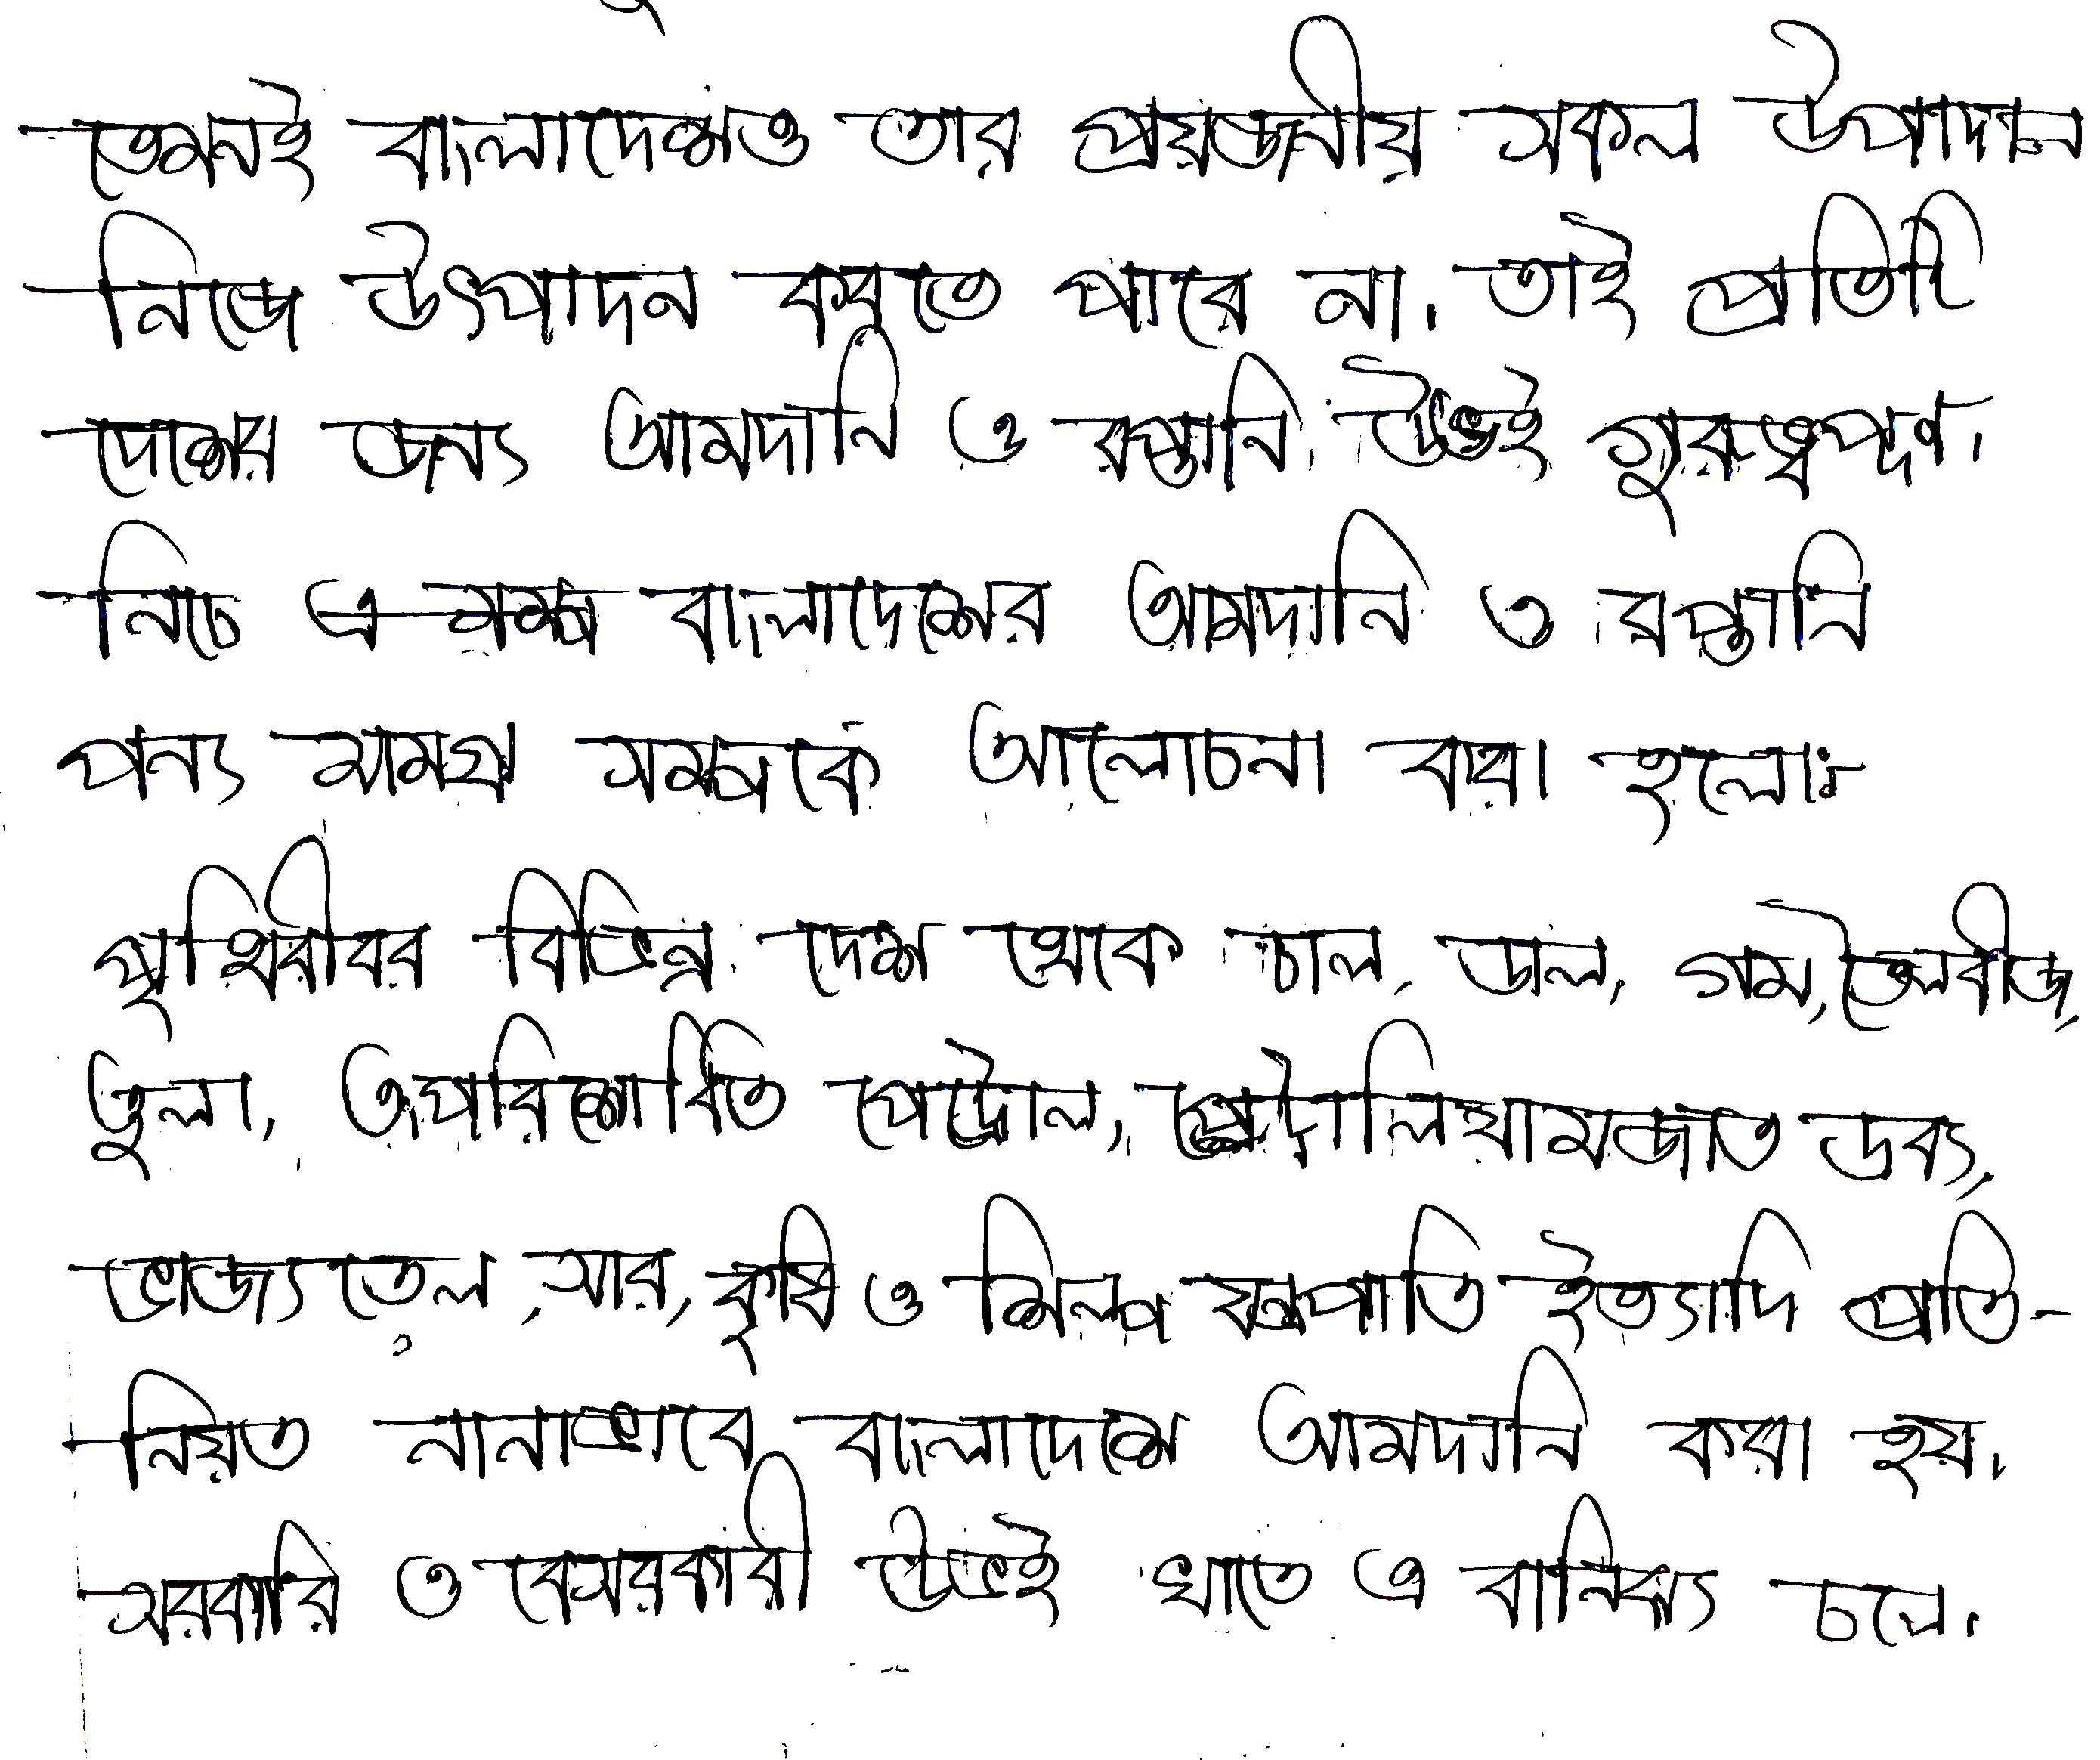 তেমনই বাংলাদেশও তার প্রয়জনীয় সকল উপাদান
নিজে উৎপাদন করতে পারে না। তাই প্রতিটি
দেশের জন্য আমদানি ও রপ্তানি উভই গুরুত্বপূর্ন।
নিচে এ সময় বাংলাদেশের আমদানি ও রপ্তানি
পন্য সামগ্রী সম্পর্কে আলোচনা করা হলোঃ
পৃথিবীবর বিভিন্ন দেশ থেকে চাল, ডাল, গম, তৈলবীজ,
তুলা, অপরিশোধিত পেট্রোল, পেট্রোলিয়ামজাত দ্রব্য,
ভোজ্য তেল, সার, কৃষি ও শিল্প যন্ত্রপাতি ইত্যাদি প্রতি-
নিয়ত নানাভাবে বাংলাদেশে আমদানি করা হয়।
সরকারি ও বেসরকারী উভই খাতে এ বানিজ্য চলে।